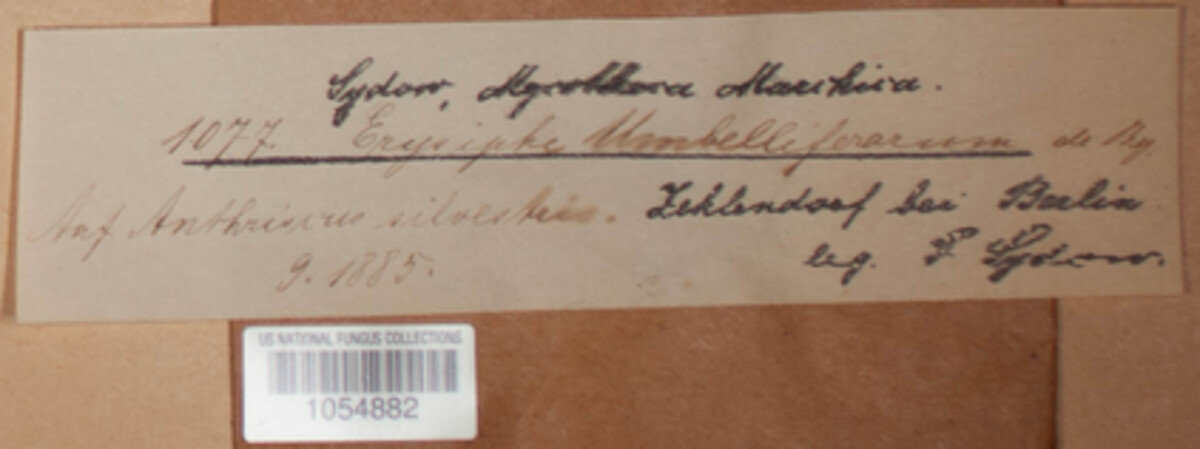 Sydow, Mycotheca Marchica.
1077. Erysiphe Umbelliferarum de By.
Auf Anthriscus silvestris. Zehlendorf bei Berlin
9. 1885. leg. P. Sydow.
US NATIONAL FUNGUS COLLECTIONS
1054882